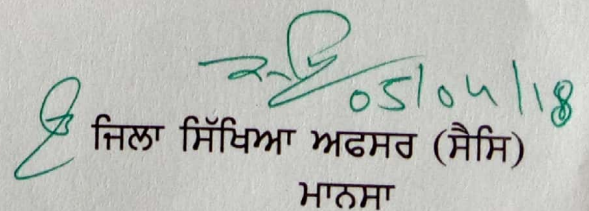 05/04/18
ਜਿਲਾ ਸਿੱਖਿਆ ਅਫਸਰ (ਸੈਸਿ)
ਮਾਨਸਾ